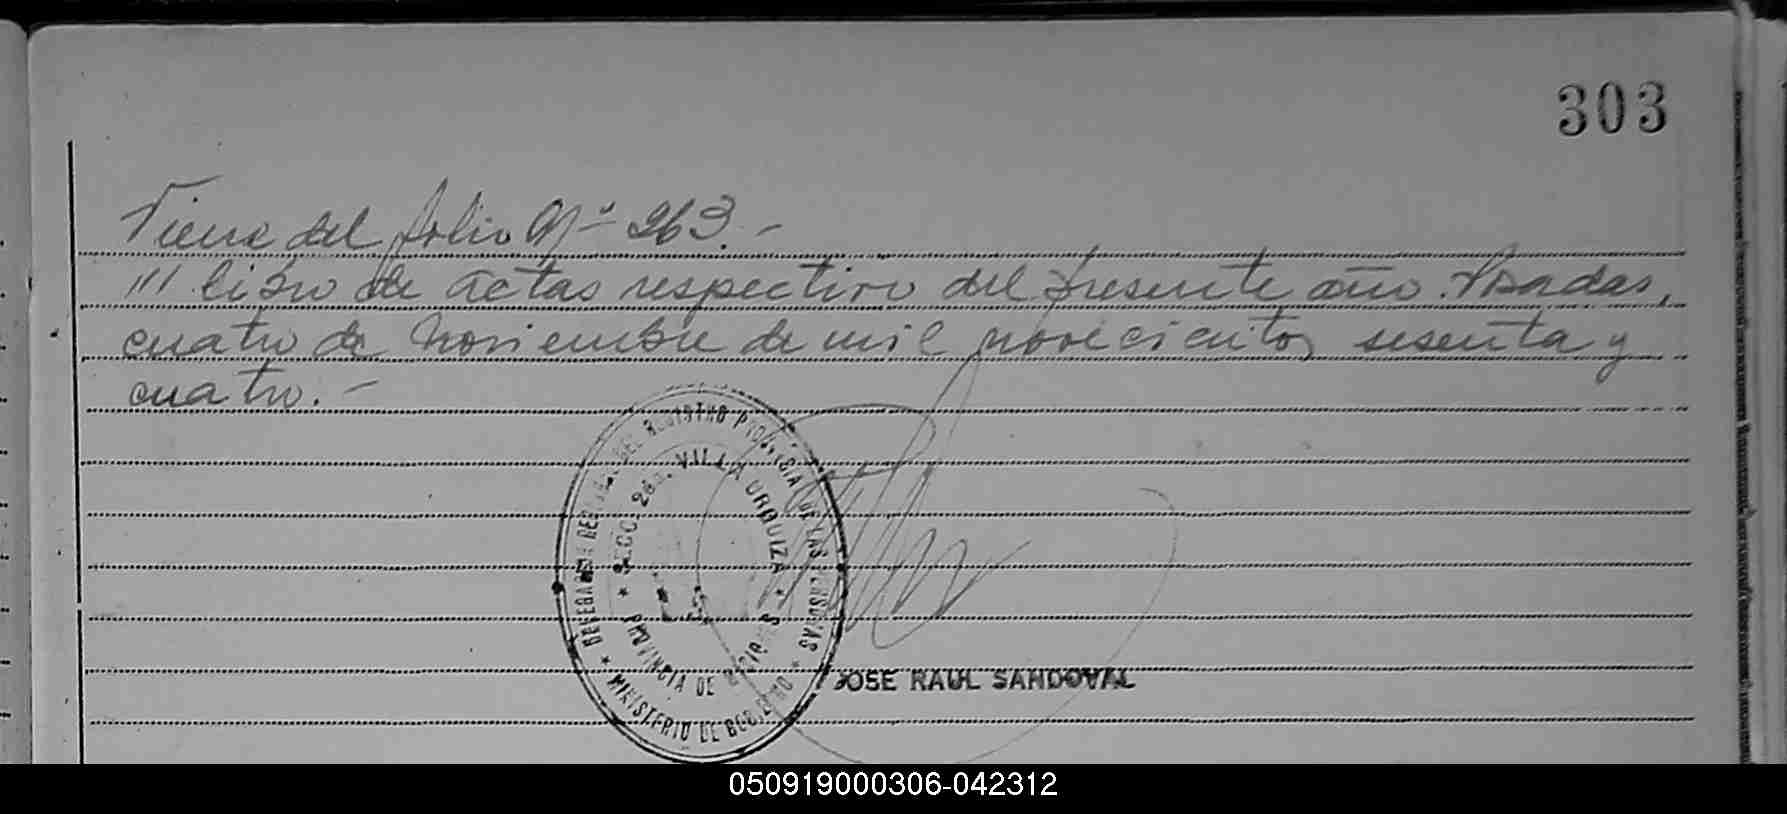 303
Viene del folio Nº 263.-
/// libro de actas respectivo del presente año. Posadas,
cuatro de noviembre de mil novecientos sesenta y
cuatro.-
DEL REGISTRO PROVINCIAL DE LAS PERSONAS
SECC. 2da. VILLA URQUIZA
PROVINCIA DE MISIONES
MINISTERIO DE GOBIERNO
JOSE RAUL SANDOVAL
050919000306-042312